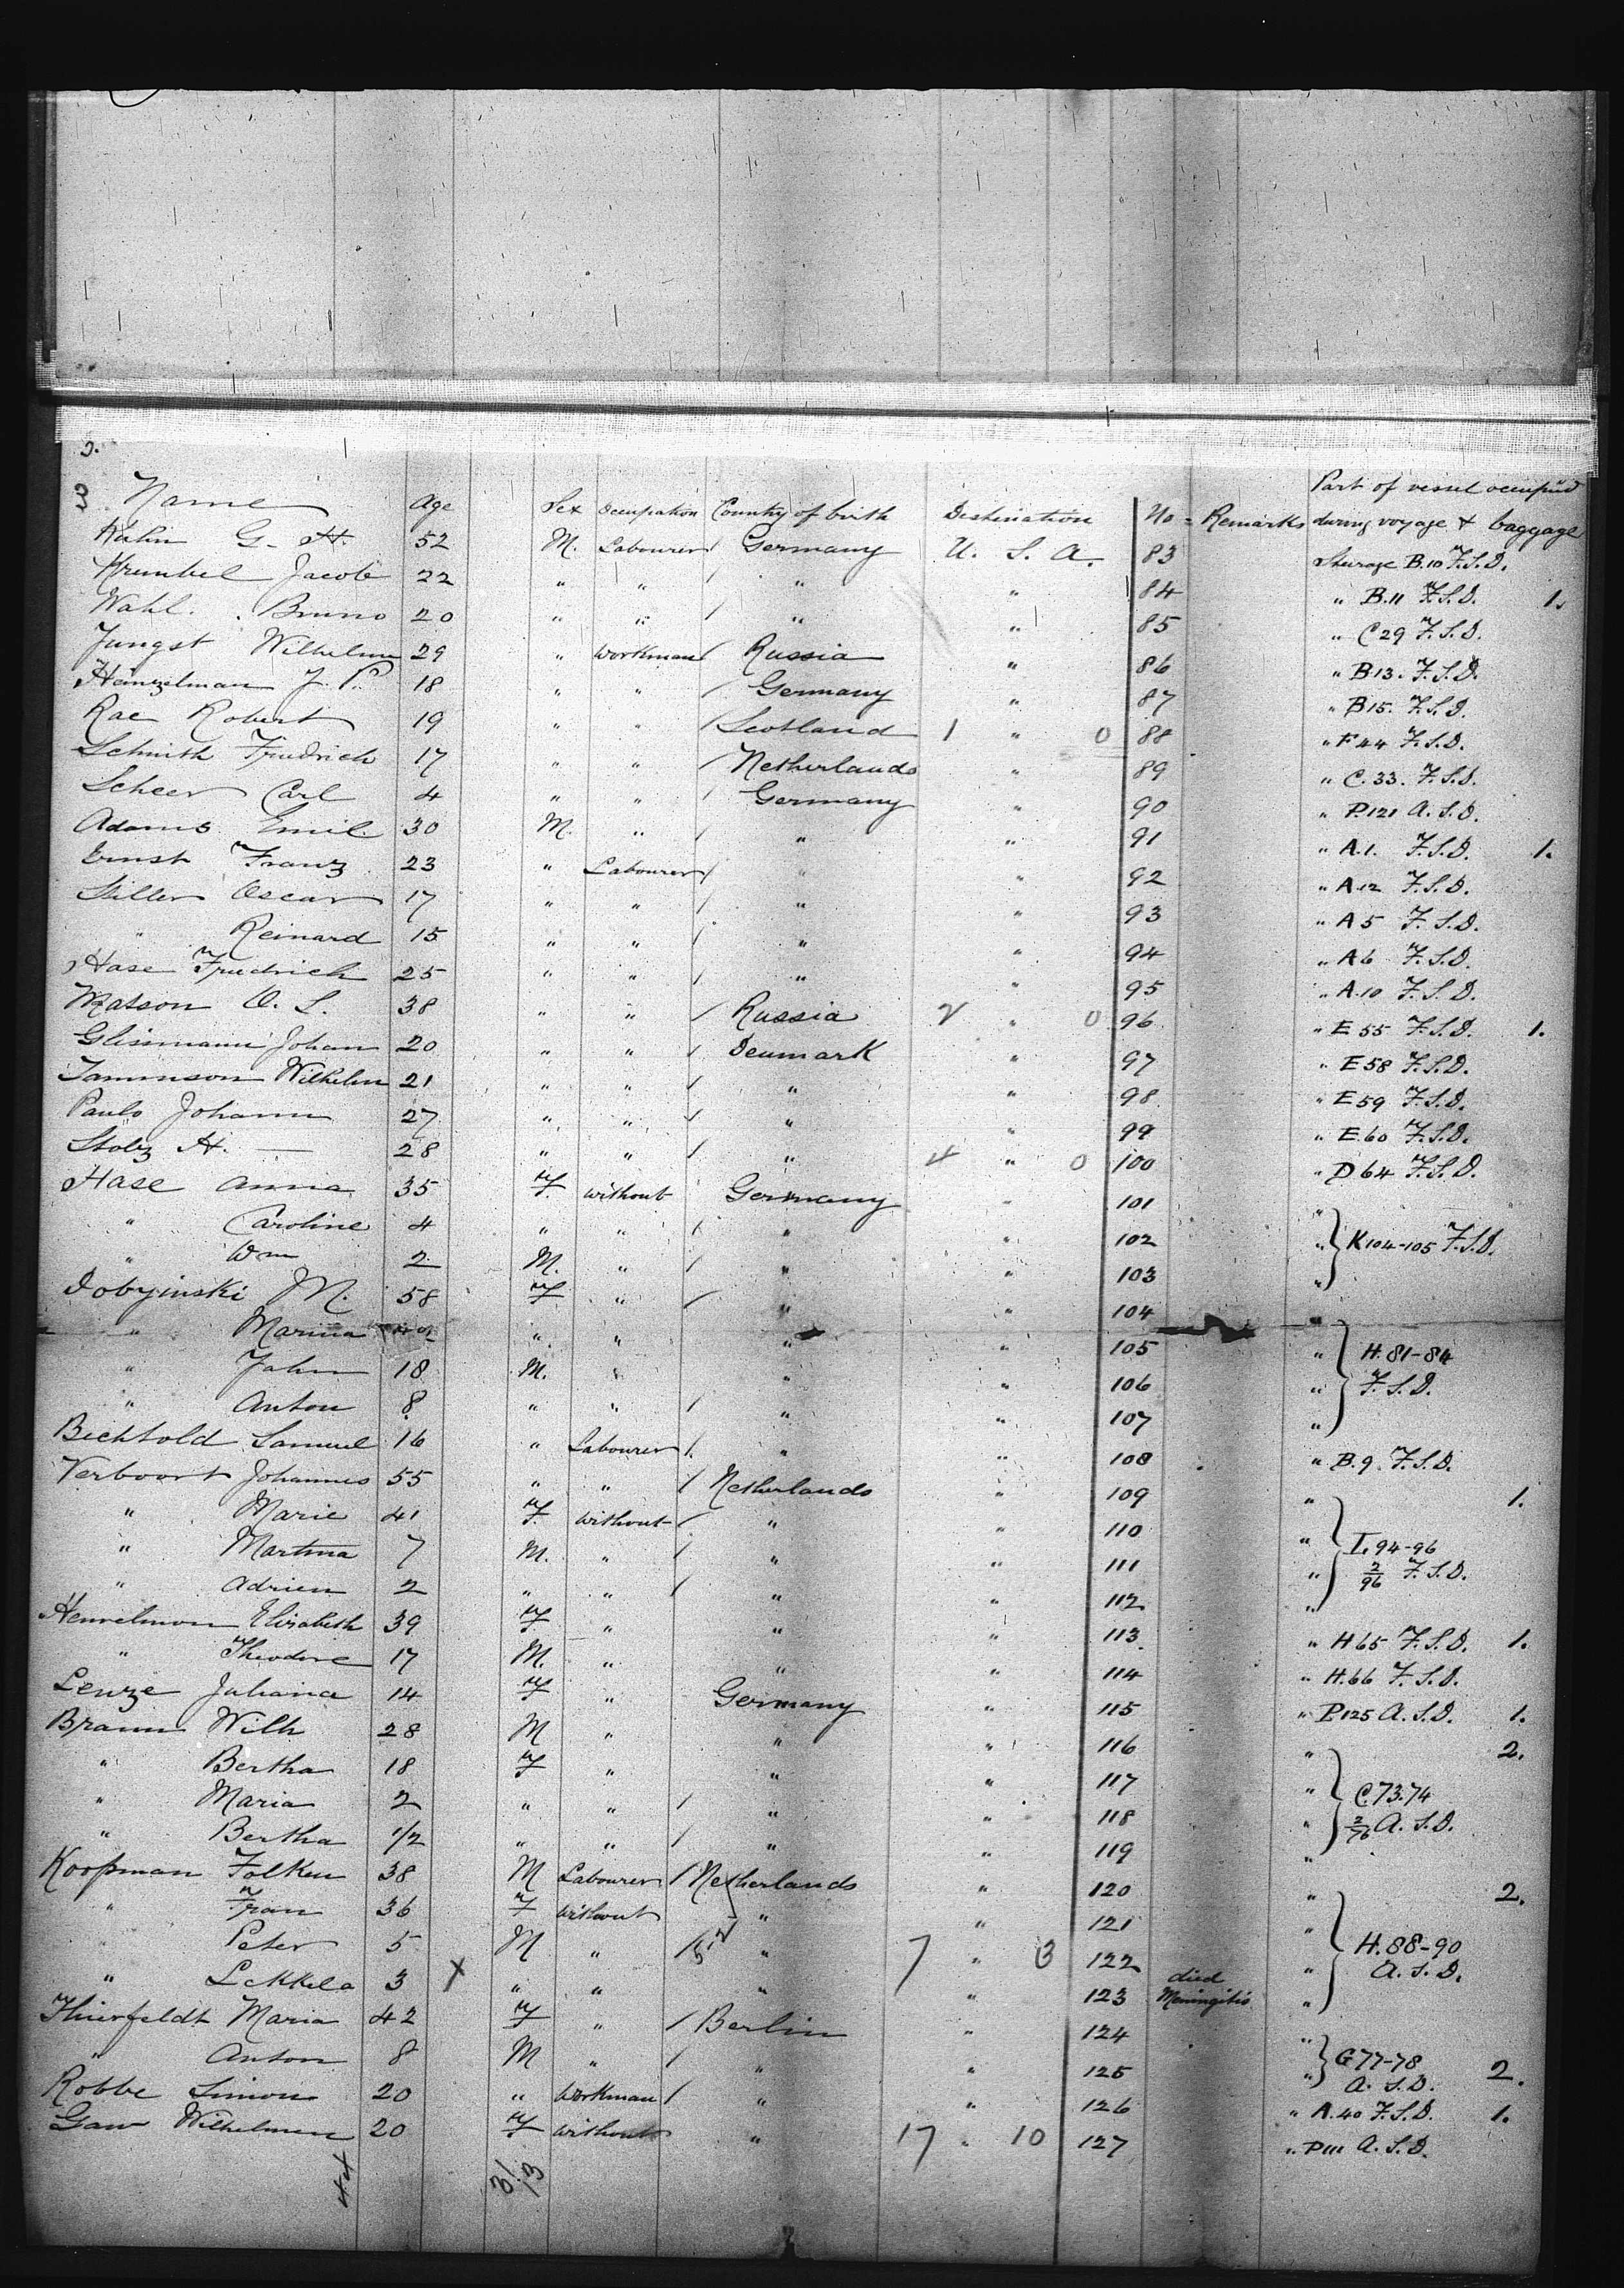 2.
3
Name Age Sex Occupation Country of birth Destination No = Remarks Part of vessel occupied during voyage & baggage
Kahn G. H. 52 M. Labourer / Germany U. S. A. 83 Steerage B.10 F.S.D.
Krumbel Jacob 22 " " / " " 84 " B.11 F.S.D. 1.
Wahl. Bruno 20 " " / " " 85 " C 29 F.S.D.
Jungst Wilhelm 29 " Workman / Russia " 86 " B.13. F.S.D.
Heinzelman J. P. 18 " " / Germany " 87 " B 15. F.S.D.
Rae Robert 19 " " / Scotland 1 " 0 88 " F 44 F.S.D.
Schmith Friedrich 17 " " / Netherlands " 89 " C. 33. F.S.D.
Scheer Carl 4 " " / Germany " 90 " P.121 A.S.D.
Adams Emil 30 M. " / " " 91 " A.1. F.S.D. 1.
Ernst Franz 23 " Labourer / " " 92 " A.12 F.S.D.
Stiller Oscar 17 " " / " " 93 " A 5 F.S.D.
" Reinard 15 " " / " " 94 " A 6 F.S.D.
Hase Friedrich 25 " " / " " 95 " A.10 F.S.D.
Matson O. L. 38 " " / Russia 2 " 0 96 " E 55 F.S.D. 1.
Glissmann Johan 20 " " / Denmark " 97 " E 58 F.S.D.
Jammson Wilhelm 21 " " / " " 98 " E 59 F.S.D.
Pauls Johann 27 " " / " " 99 " E.60 F.S.D.
Stolz H. — 28 " " / " 4 " 0 100 " D 64 F.S.D.
Hase Anna 35 F. without Germany " 101 "
" Caroline 4 " " / " " 102 " } K 104-105 F.S.D.
" Wm 2 M. " / " " 103 "
Dobyinski M. 58 F " / " " 104 "
" Marina " " " " 105 " } H. 81-84
" John 18 M. " " " 106 " } F.S.D.
" Anton 8 " " / " " 107 "
Bechtold Samuel 16 " Labourer / " " 108 " B. 9. F.S.D.
Verboort Johannes 55 " " / Netherlands " 109 " 1.
" Marie 41 F. without / " " 110 " } I. 94-96
" Martina 7 M. " / " " 111 " } 2/96 F.S.D.
" Adrien 2 " " / " " 112 "
Henvelmon Elisabeth 39 F. " " " 113 " H 65 F.S.D. 1.
" Theodore 17 M. " " " 114 " H.66 F.S.D.
Lenze Juliana 14 F " Germany " 115 " P.125 A.S.D. 1.
Braun Wilh 28 M " " " 116 " 2.
" Bertha 18 F " " " 117 " } C.73.74
" Maria 2 " " / " " 118 " } 2/76 A.S.D.
" Bertha 1/2 " " / " " 119 "
Koopman Folken 38 M Labourer / Netherlands " 120 " 2.
" Fran 36 F without " " 121 "
" Peter 5 M " / 52 " 7 " 3 122 " } H. 88-90 A.S.D.
" Lekkela 3 X " " " " 123 died Meningitis "
Thierfeldt Maria 42 F " / Berlin " 124 "
" Anton 8 M " / " " 125 " } G 77-78 A.S.D. 2.
Robbe Simon 20 " Workman / " " 126 " A.40 F.S.D. 1.
Gaw Wilhelmen 20 F without " 17 " 10 127 " P 111 A.S.D.
44 31/13